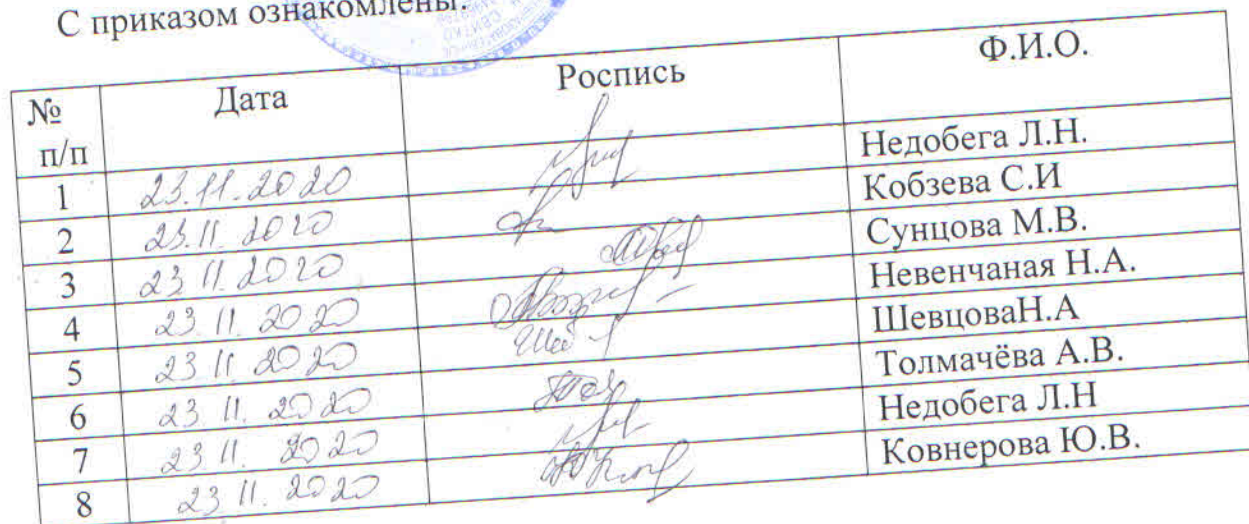 С приказом ознакомлены:
№ п/п Дата Роспись Ф.И.О.
1 23.11.2020 Недобега Л.Н.
2 23.11.2020 Кобзева С.И
3 23 11.2020 Сунцова М.В.
4 23.11.2020 Невенчаная Н.А.
5 23.11.2020 ШевцоваН.А
6 23 11. 2020 Толмачёва А.В.
7 23 11. 2020 Недобега Л.Н
8 23 11. 2020 Ковнерова Ю.В.